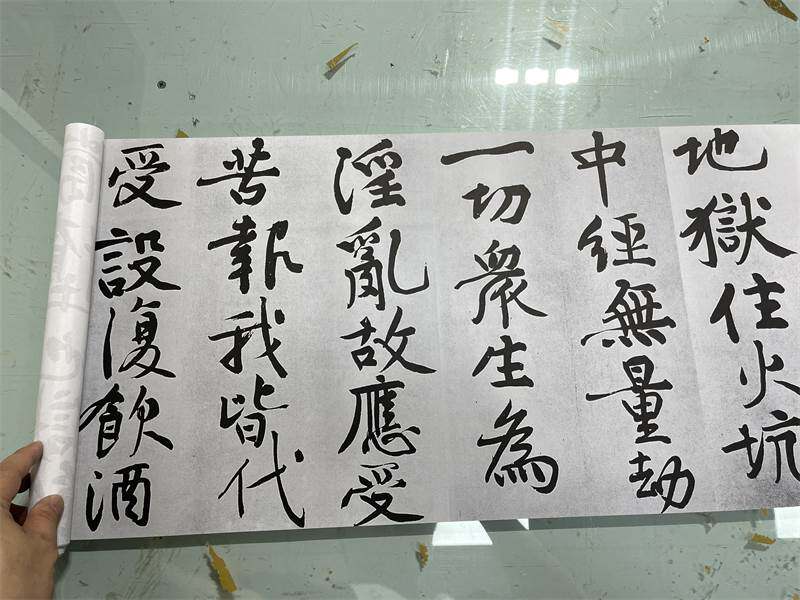 地獄住火坑
中經無量劫
一切衆生為
淫亂故應受
苦報我皆代
受設復飲酒